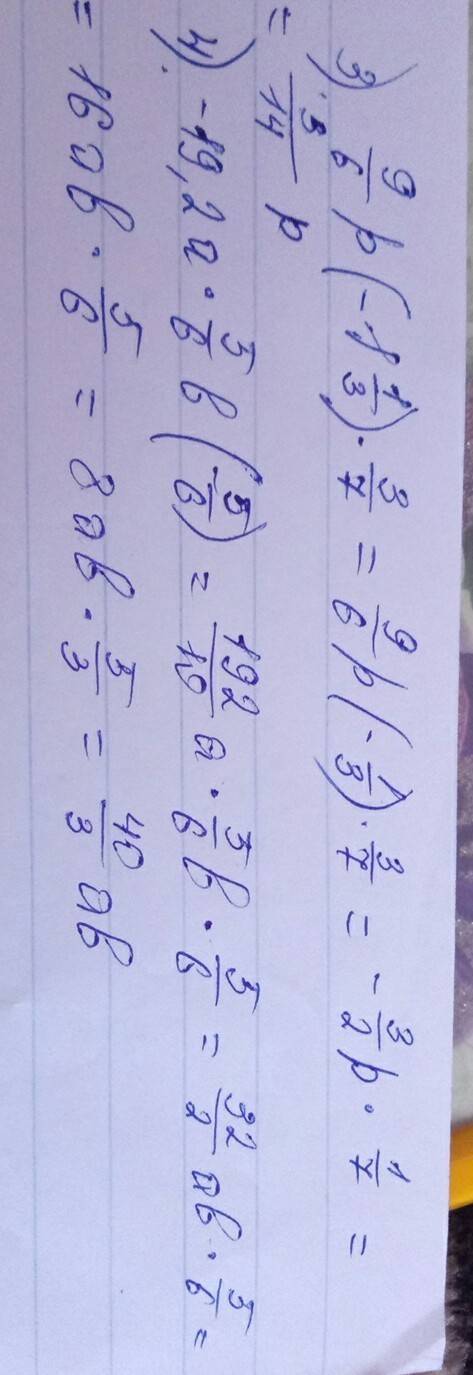 3) 9/6 p (-1 1/3) · 3/7 = 9/6 p (-1/3) · 3/7 = - 3/2 p · 1/7 =
= 3/14 p
4) -19,2a · 5/6 b (-5/6) = 192/10 a · 5/6 b · 5/6 = 32/2 ab · 5/6 =
= 16 ab · 5/6 = 8ab · 5/3 = 40/3 ab